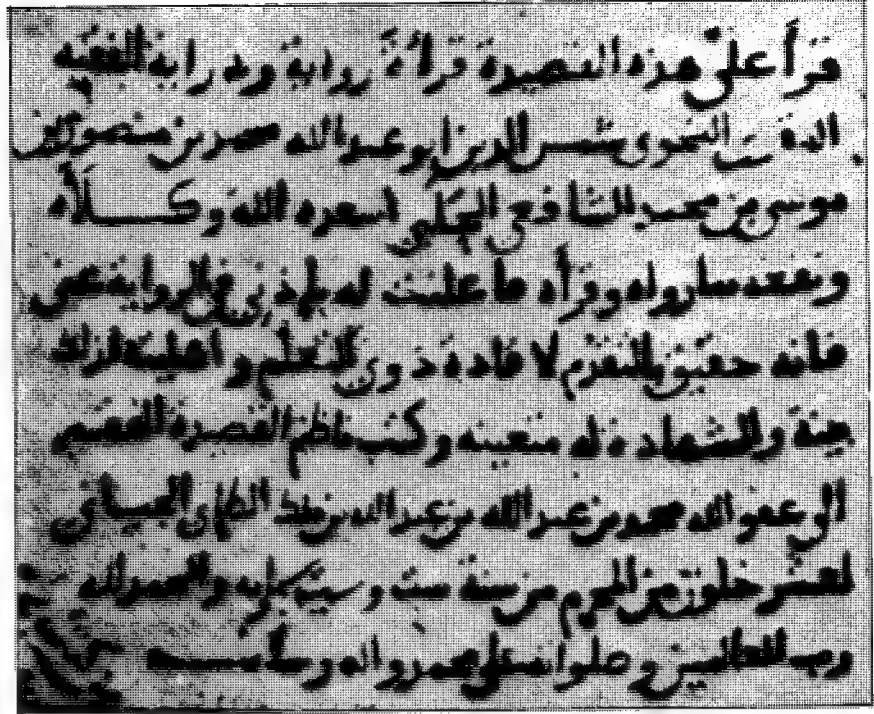 قرأ علي هذه القصيدة قراءة رواية ودراية الفقيه
شمس الدين ابو عبد الله محمد بن منصور بن
موسى بن محمد الشافعي الحلبي اسعده الله وكلأه
ونفعه بما رواه وقرأه
فانه حقيق بالتقدم لافادة ذوي التعلم واهليته لذلك
بينة والشهادة له متعينة وكتب ناظم القصيدة الفقير
الى عفو الله محمد بن عبد الله بن عبد الله بن ملك الطائي الجياني
لعشر خلون من المحرم من سنة ست وستين وستمايه والحمد لله
رب العالمين وصلواته على محمد واله وسلامه